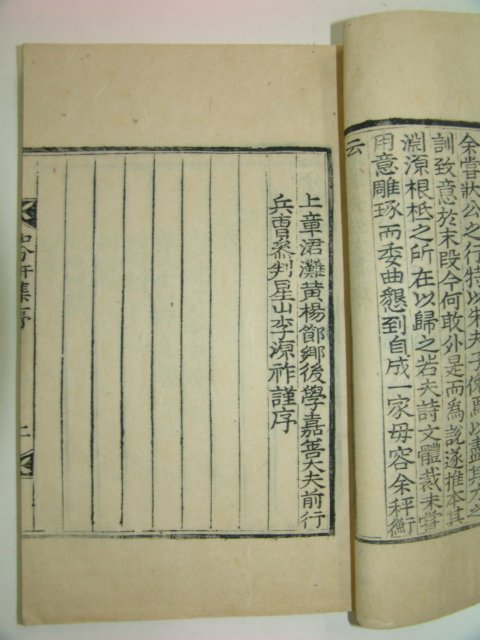 余嘗狀公之行特以朱夫子像爲以盡其
訓致意於末段今何敢外是而爲說遂推本其
淵源根柢之所在以歸之若夫詩文體裁未嘗
用意雕琢而委曲懇到自成一家毋容余秤衡
云
上章涒灘黃楊節鄕後學嘉善大夫前行
兵曹參判星山李源祚謹序
知分軒集序
二